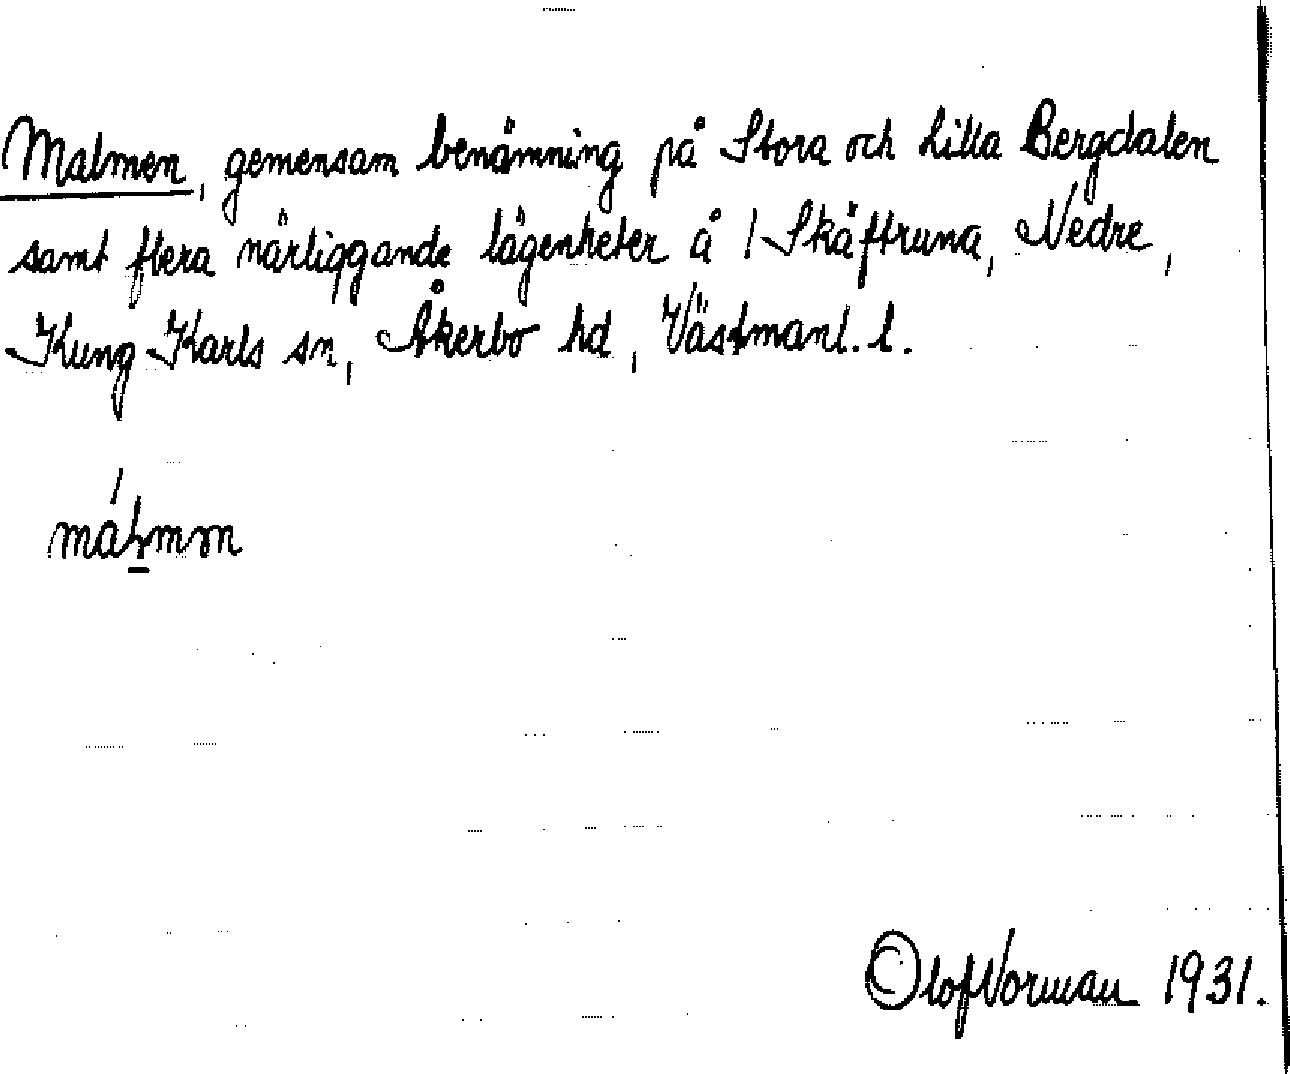 Malmen, gemensam benämning på Stora och Lilla Bergdalen
samt flera närliggande lägenheter å 1 Skäftruna, Nedre,
Kung Karls sn, Åkerbo hd, Västmanl. l.
málmm
Olof Norman 1931.